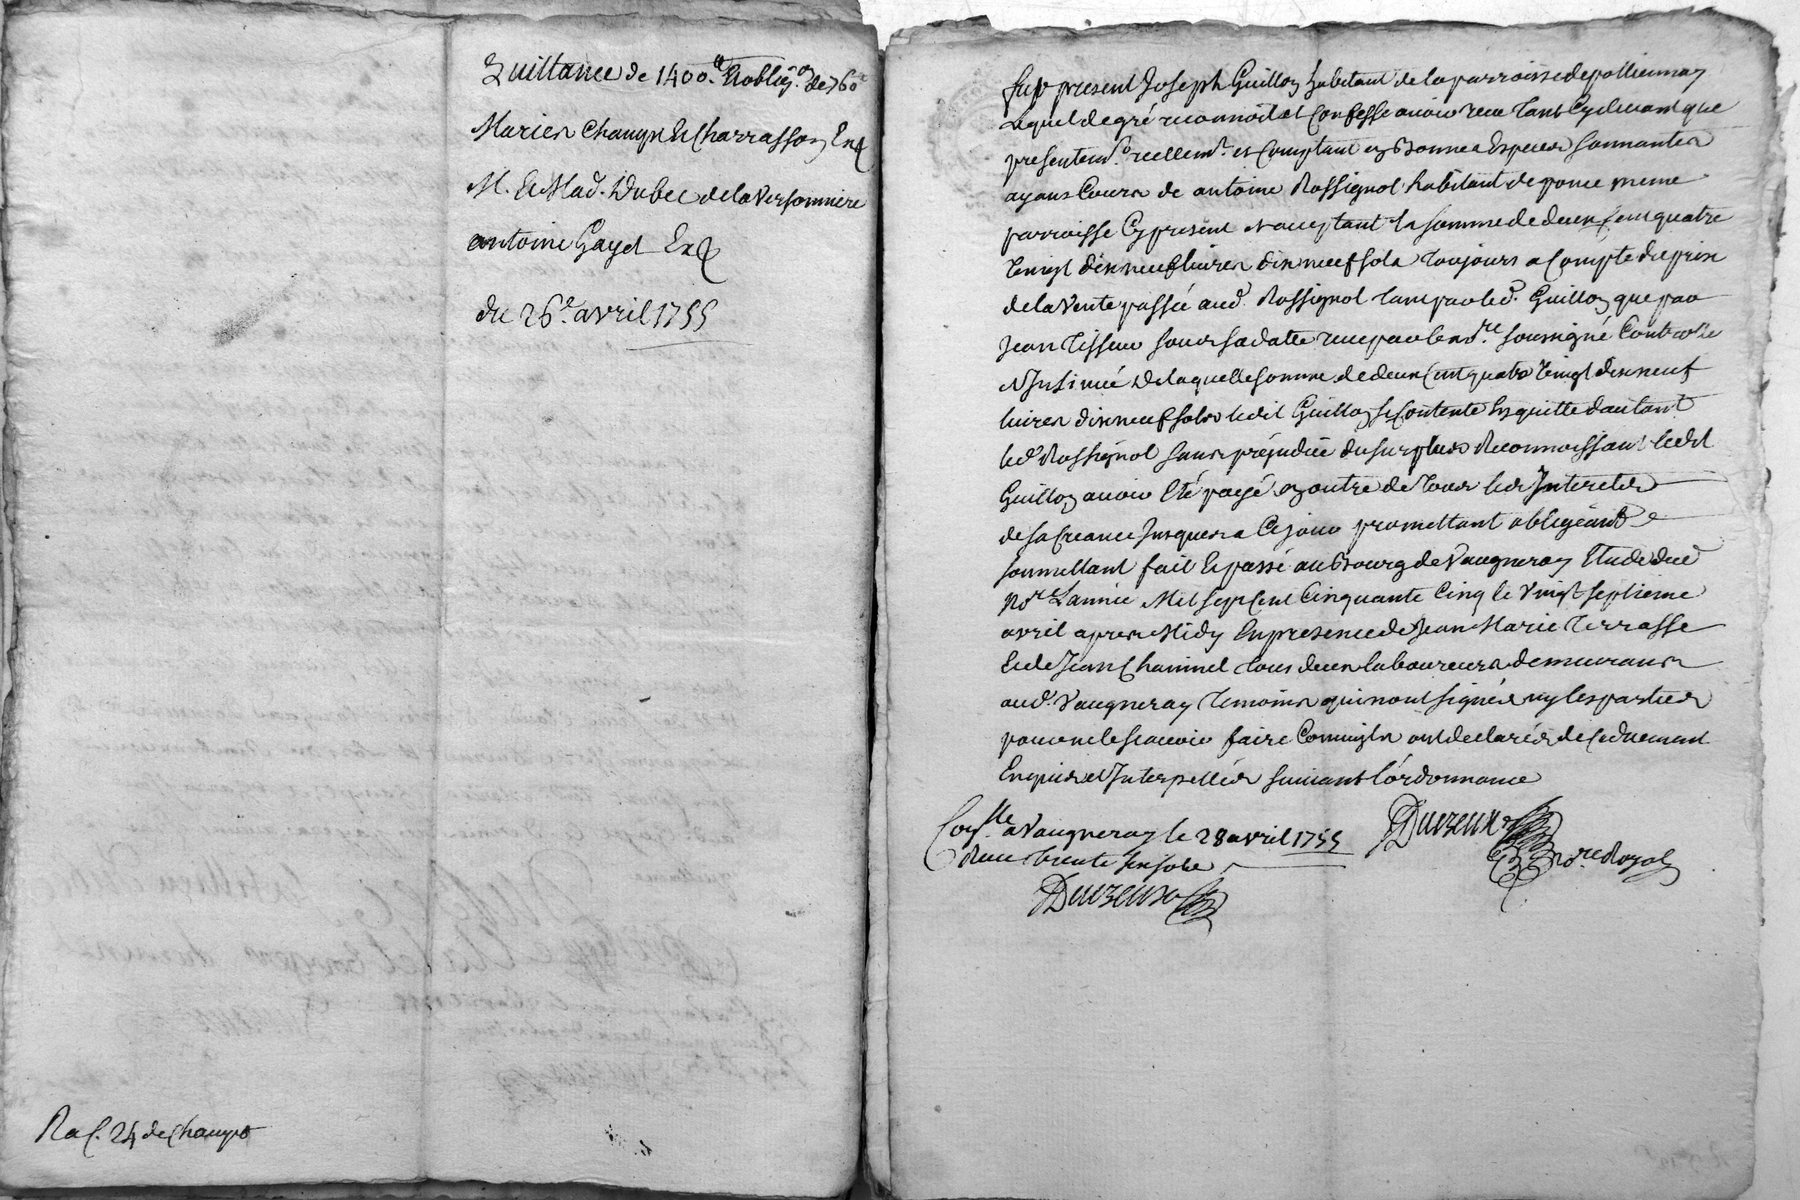 Quittance de 1400.ll Et oblig.on de 760
Maries Champs Et Charrasson Ex
M. Et Mad. Dubec de la Versonniere
antoine Gayet Ex
du 26.e avril 1755
Ra f. 24 de Champs
fut present Joseph Guillon habitant de la parroisse de pollienay
Lequel de gré reconnoit et Confesse avoir receu tant Cydevant que
presentem.t reellem.t et Comptant en Bonnes Especes sonnantes
ayans Cours de antoine Rossignol habitant de meme
parroisse Cy present et acceptant la somme de deux Cent quatre
Vingt dix neuf livres dix neuf sols toujours a Compte du prix
de la Vente passée aud. Rossignol tant par led. Guillon que par
Jean Tisseur sous sa datte receue par le no.re soussigné Controllé
et Insinué De laquelle somme de deux Cent quatre Vingt dix neuf
livres dix neuf sols ledit Guillon se Contente En quitte d'autant
led. Rossignol sans préjudice du surplus Reconnoissant ledit
Guillon avoir Eté payé en outre de tous les Interets
de sa Creance Jusques a Ce jour promettant obligeant
soumettant fait Et passé au Bourg de Vaugneray Etude dud.
No.re L'année Mil sept Cent Cinquante Cinq le Vingt septieme
avril apres Midy En presence de Jean Marie Terrasse
Et de Jean Chaminel tous deux laboureurs demeurans
aud. Vaugneray temoins qui n'ont signés ny les parties
pour ne le scavoir faire Comm'ils ont declarés de Ce duement
Enquis et Interpellés suivant l'ordonnance
Con.lle a Vaugneray le 28 avril 1755
Receu trente six sols
no.re Royal